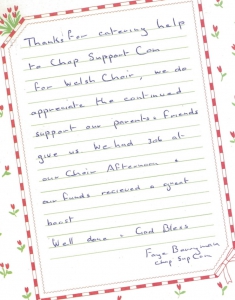 Thanks for catering help
to Chap Support Com
for Welsh Choir, we do
appreciate the continued
support our parents & friends
give us. We had job at
our Choir Afternoon &
our funds recieved a great
boost
Well done - God Bless
Faye
Chap Sup Com